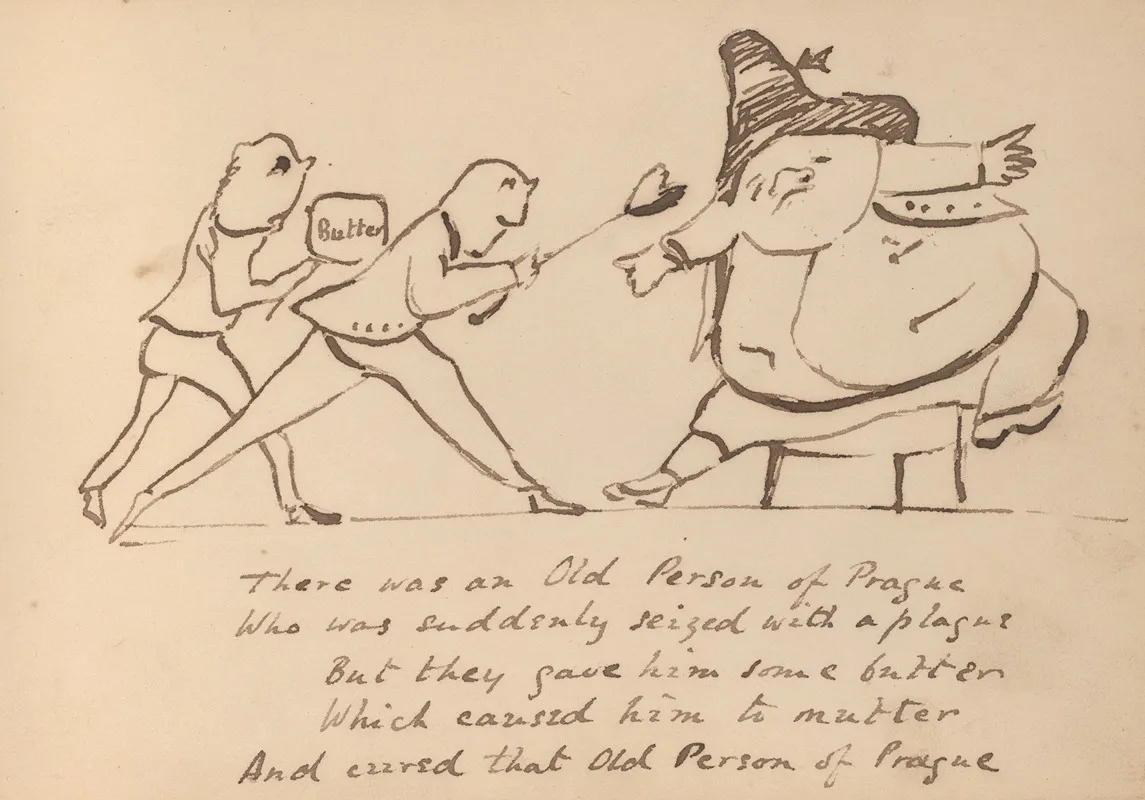 Butter
There was an Old Person of Prague
Who was suddenly seized with a plague
But they gave him some butter
Which caused him to mutter
And cured that Old Person of Prague